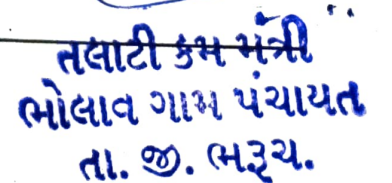 તલાટી કમ મંત્રી
ભોલાવ ગામ પંચાયત
તા. જી. ભરૂચ.